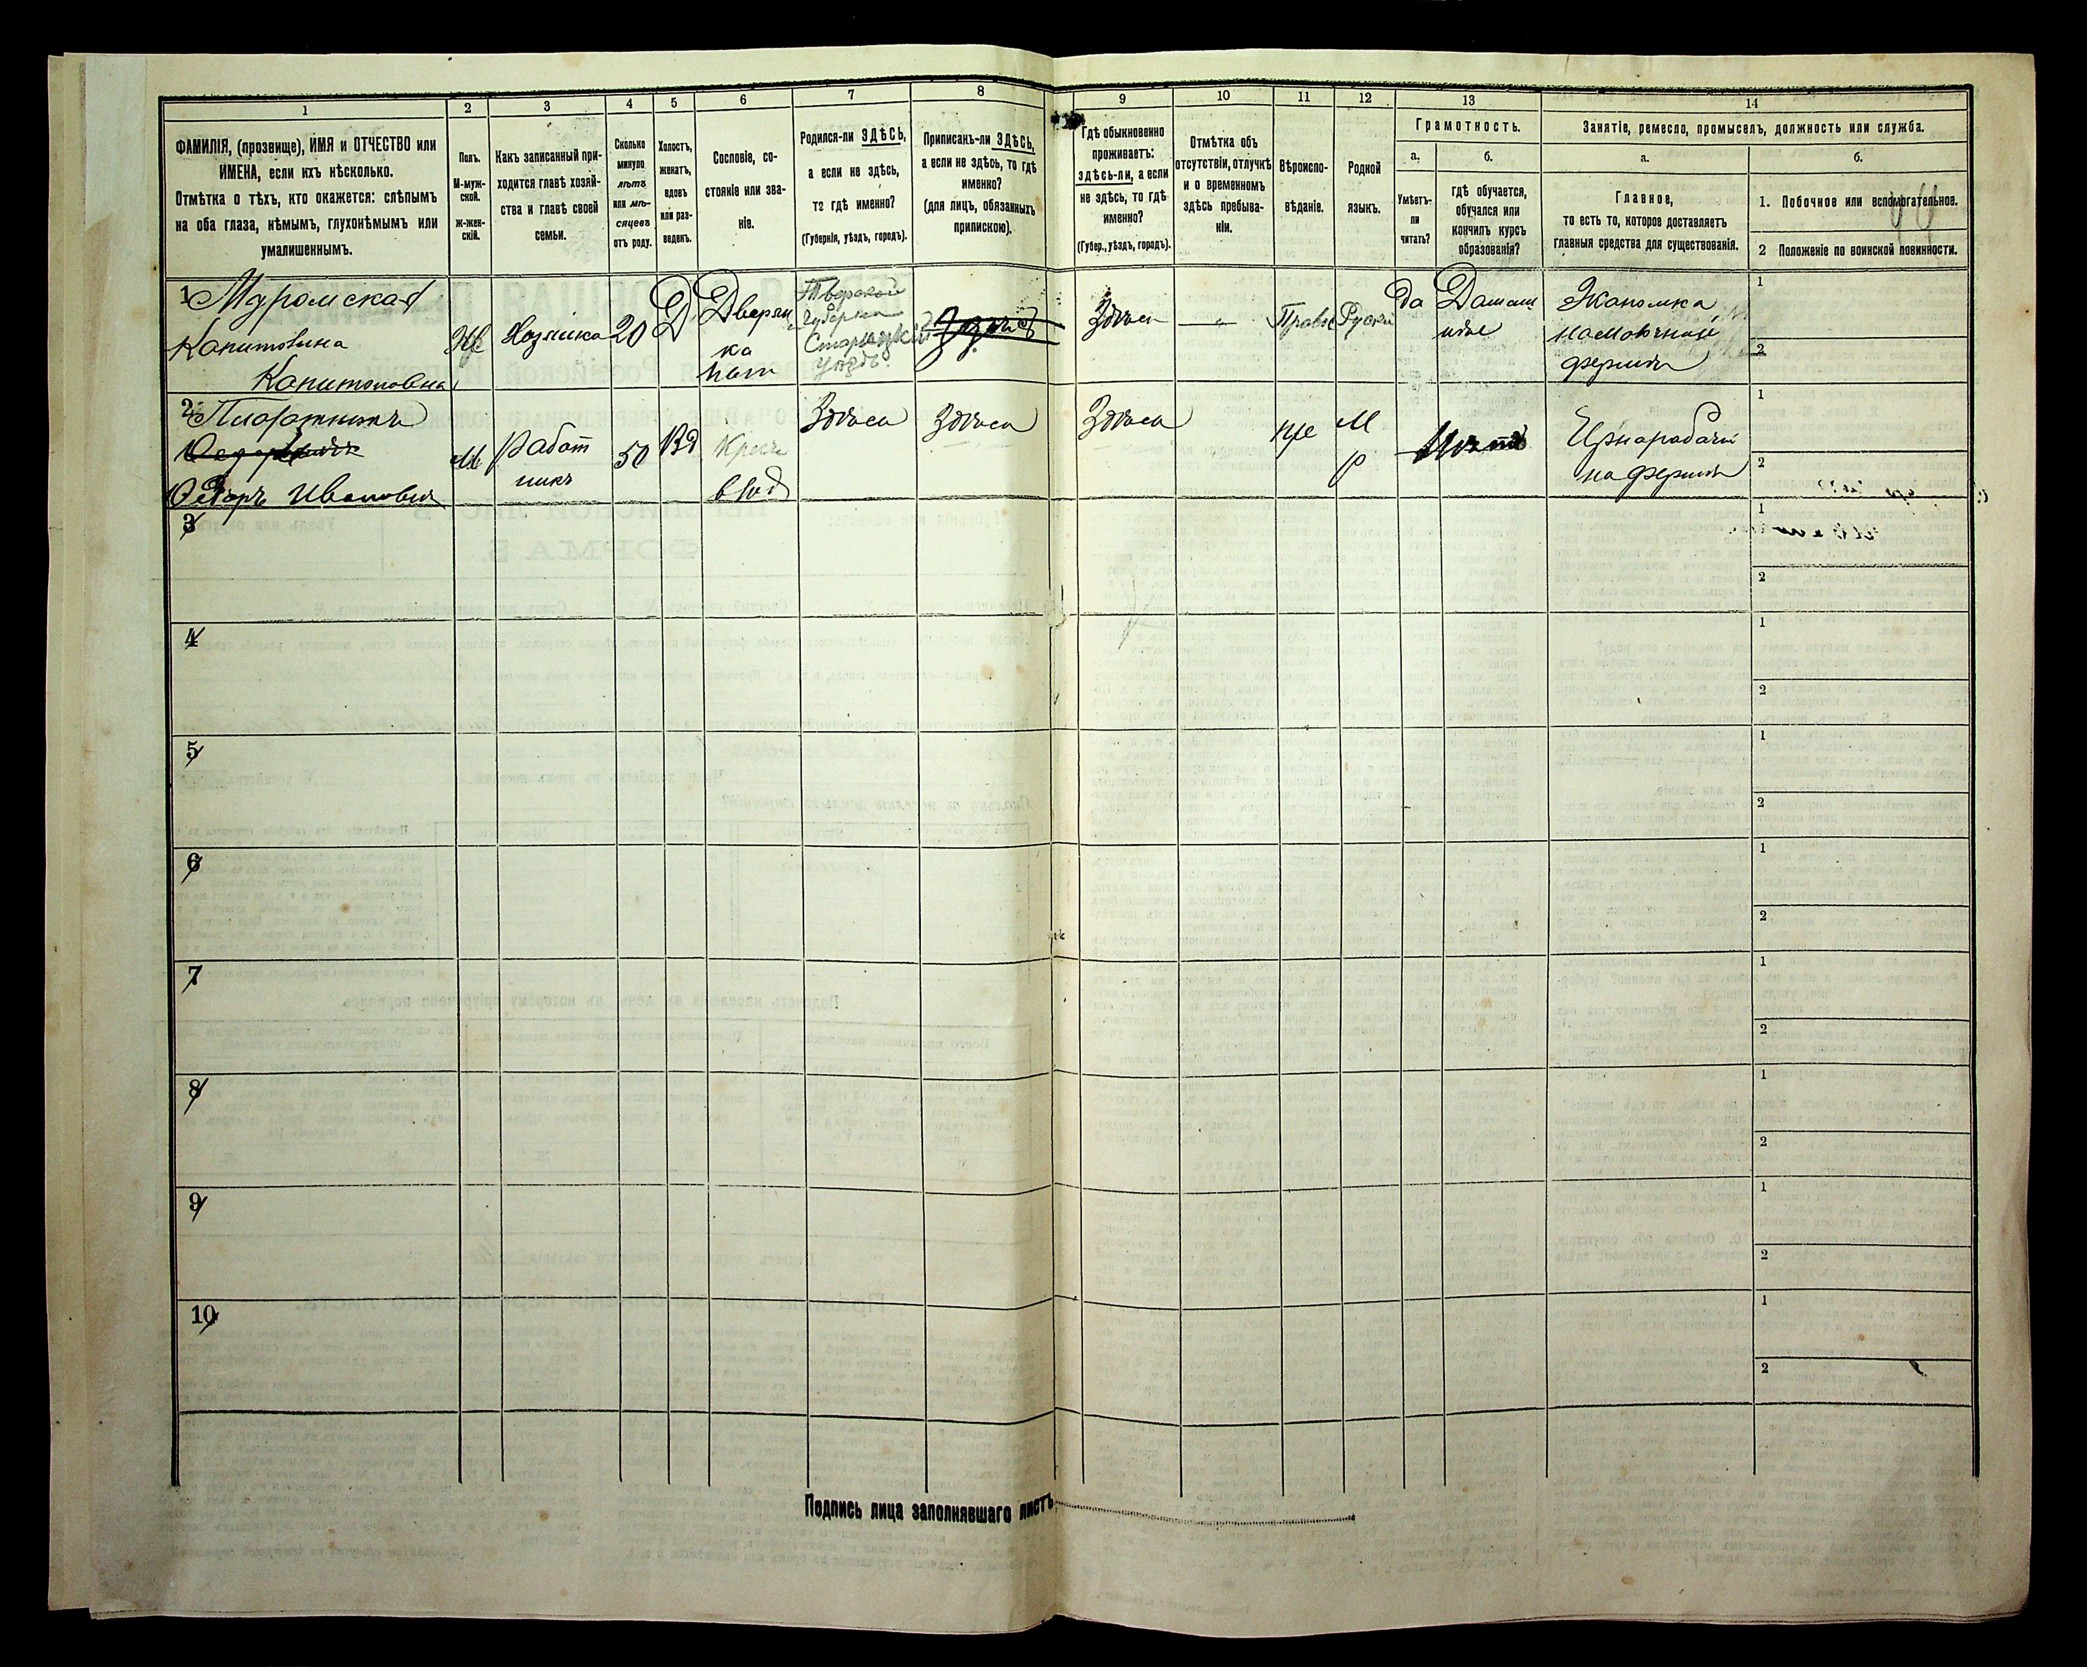 1 2 3 4 5 6 7 8 9 10 11 12 13 14
ФАМИЛІЯ, (прозвище), ИМЯ и ОТЧЕСТВО или
ИМЕНА, если ихъ нѣсколько.
Отмѣтка о тѣхъ, кто окажется: слѣпымъ
на оба глаза, нѣмымъ, глухонѣмымъ или
умалишеннымъ.
Полъ.
М-муж-
ской.
ж-жен-
скій.
Какъ записанный при-
ходится главѣ хозяй-
ства и главѣ своей
семьи.
Сколько
минуло
лѣтъ
или мѣ-
сяцевъ
отъ роду.
Холостъ,
женатъ,
вдовъ
или раз-
веденъ.
Сословіе, со-
стояніе или зва-
ніе.
Родился-ли ЗДѢСЬ,
а если не здѣсь,
то гдѣ именно?
(Губернія, уѣздъ, городъ).
Приписанъ-ли ЗДѢСЬ,
а если не здѣсь, то гдѣ
именно?
(для лицъ, обязанныхъ
припискою).
Гдѣ обыкновенно
проживаетъ:
здѣсь-ли, а если
не здѣсь, то гдѣ
именно?
(Губер., уѣздъ, городъ).
Отмѣтка объ
отсутствіи, отлучкѣ
и о временномъ
здѣсь пребыва-
ніи.
Вѣроиспо-
вѣданіе.
Родной
языкъ.
Грамотность.
а.
Умѣетъ-
ли
читать?
б.
гдѣ обучается,
обучался или
кончилъ курсъ
образованія?
Занятіе, ремесло, промыселъ, должность или служба.
а.
Главное,
то есть то, которое доставляетъ
главныя средства для существованія.
б.
1. Побочное или вспомогательное.
2 Положеніе по воинской повинности.
1 Муромская
Капитовина
Капитоновна
Ж
Хозяйка
20
Д
Дворян
ка
Тверской
Губерніи
Старицкій
уѣздъ.
Здѣсь
Правос
Руский
да
Домаш
Экономка
на Молочной
фермѣ
1
2
2 Плотникъ
Ѳедоръ Ивановичъ
М
Работ
никъ
50
Вд
Крест
Здѣсь
Здѣсь
Здѣсь
Нѣтъ
Чрнарабочи
на фермѣ
1
2
3
1
2
4
1
2
5
1
2
6
1
2
7
1
2
8
1
2
9
1
2
10
1
2
Подпись лица заполнявшаго листъ